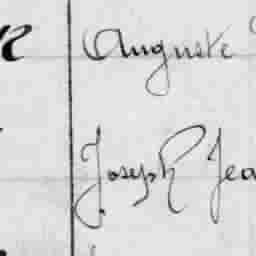 Auguste
Joseph Jea